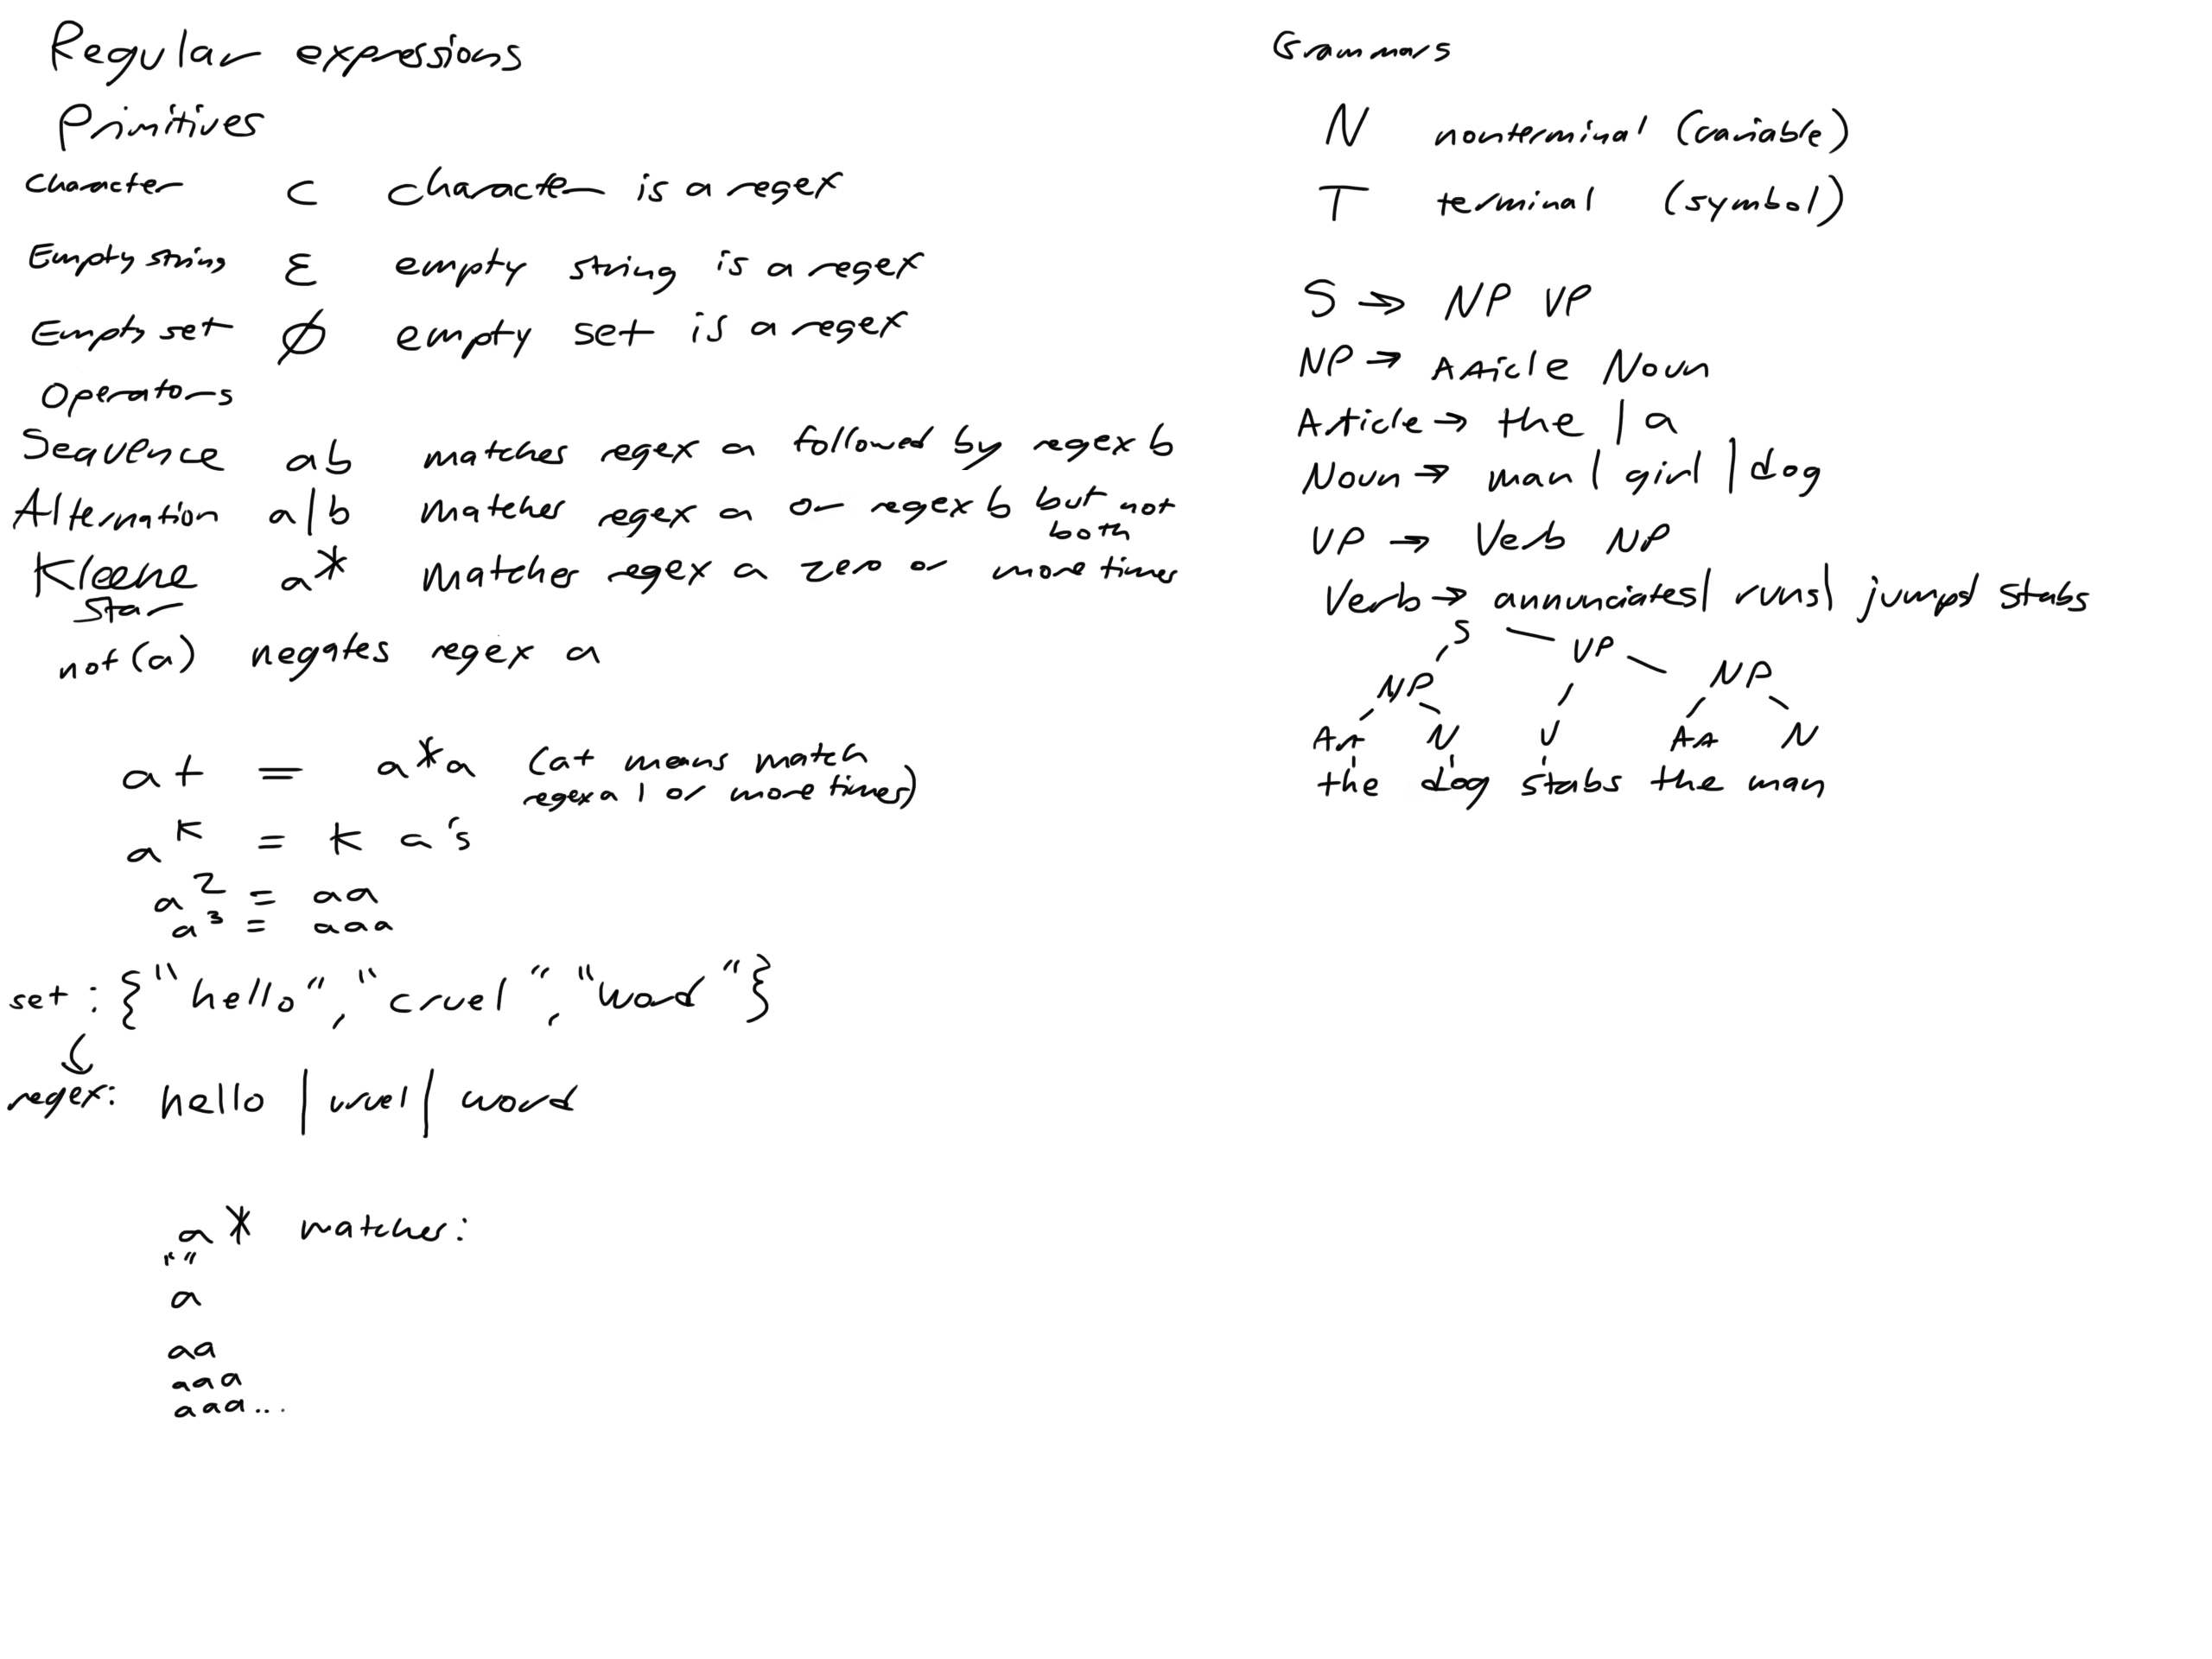 Regular expressions
Primitives
Character c character is a regex
Empty string ε empty string is a regex
Empty set ∅ empty set is a regex
Operators
Sequence ab matches regex a followed by regex b
Alternation a|b matches regex a or regex b but not
both
Kleene a* matches regex a zero or more times
Star
not(a) negates regex a
a+ = a*a (a+ means match
regex a 1 or more times)
a^k = k a's
a^2 = aa
a^3 = aaa
set : {"hello", "cruel", "word"}
regex: hello | cruel | word
a* matches:
""
a
aa
aaa
aaa...
Grammars
N nonterminal (variable)
T terminal (symbol)
S → NP VP
NP → Article Noun
Article → the | a
Noun → man | girl | dog
VP → Verb NP
Verb → annunciates | runs | jumps | stabs
S
VP
NP NP
Art N V Art N
the dog stabs the man